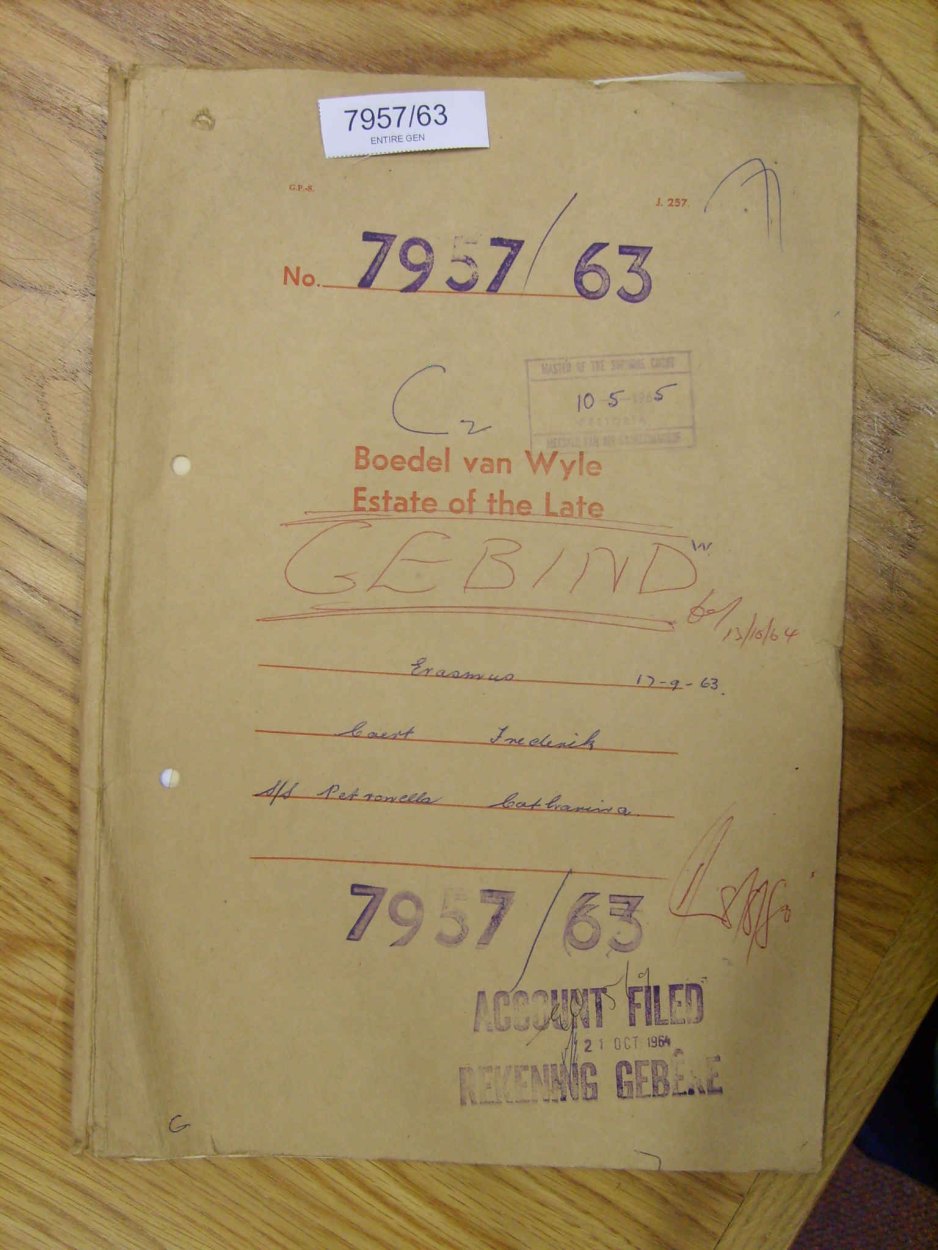 7957/63
ENTIRE GEN
G.P.-S.
J. 257.
No. 7957/63
C2
MASTER OF THE SUPREME COURT
10-5-1965
PRETORIA
Boedel van Wyle
Estate of the Late
GEBIND
13/10/64
Erasmus 17-9-63.
Coert Frederik
s/s Petronella Catharina.
7957/63
ACCOUNT FILED
21 OCT 1964
REKENING GEBÊRE
G